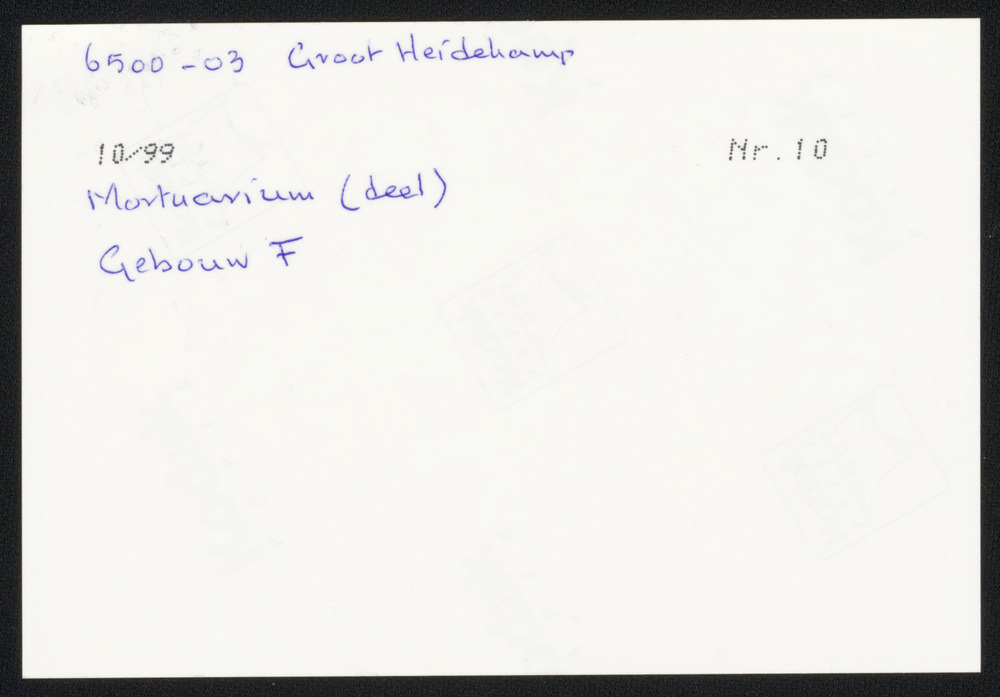 6500-03 Groot Heidekamp
10/99 Nr. 10
Mortuarium (deel)
Gebouw F